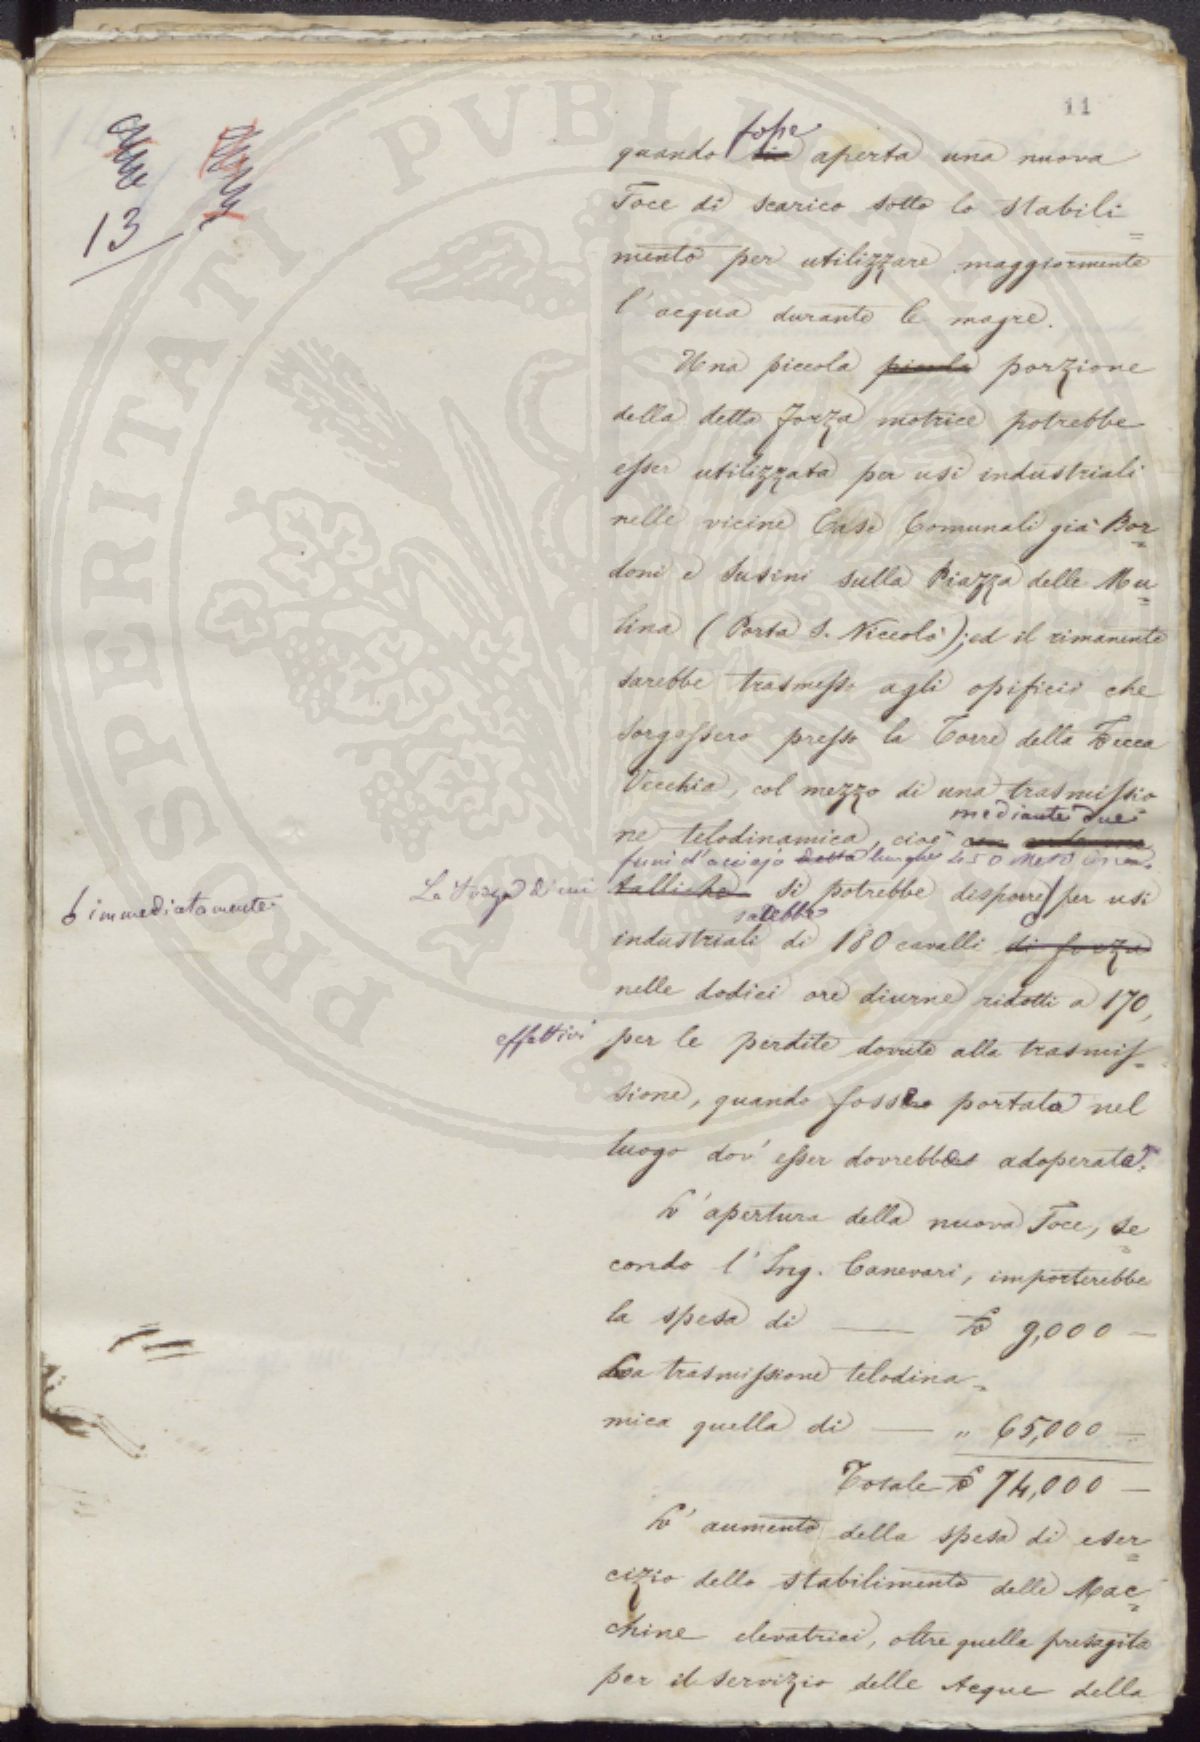 11
13
fosse
quando sia aperta una nuova
Foce di scarico sotto lo stabili=
mento per utilizzare maggiormente
l'acqua durante le magre.
Una piccola piccola porzione
della detta forza motrice potrebbe
esser utilizzata per usi industriali
nelle vicine Case Comunali già Bor=
doni e Susini sulla Piazza delle Mu=
lina (Porta S. Niccolò); ed il rimanente
sarebbe trasmesso agli opificii che
sorgessero presso la Torre della Zecca
Vecchia, col mezzo di una trasmissio
mediante due
ne telodinamica, cioè con
funi d'acciajo lunghe 450 Metri
immediatamente
La forza di cui talliche si potrebbe disporre per usi
sarebbe
industriali di 180 cavalli di forza
nelle dodici ore diurne ridotti a 170,
effettivi per le perdite dovute alla trasmis=
sione, quando fosse portata nel
luogo dov'esser dovrebbe adoperata.
L'apertura della nuova Foce, se=
condo l'Ing. Canevari, importerebbe
la spesa di —— £ 9,000 —
La trasmissione telodina=
mica quella di —— „ 65,000 —
Totale £ 74,000 —
L'aumento della spesa di eser=
cizio dello stabilimento delle Mac=
chine elevatrici, oltre quella presagita
per il servizio delle Acque della
PROSPERITATI PVBLICAE